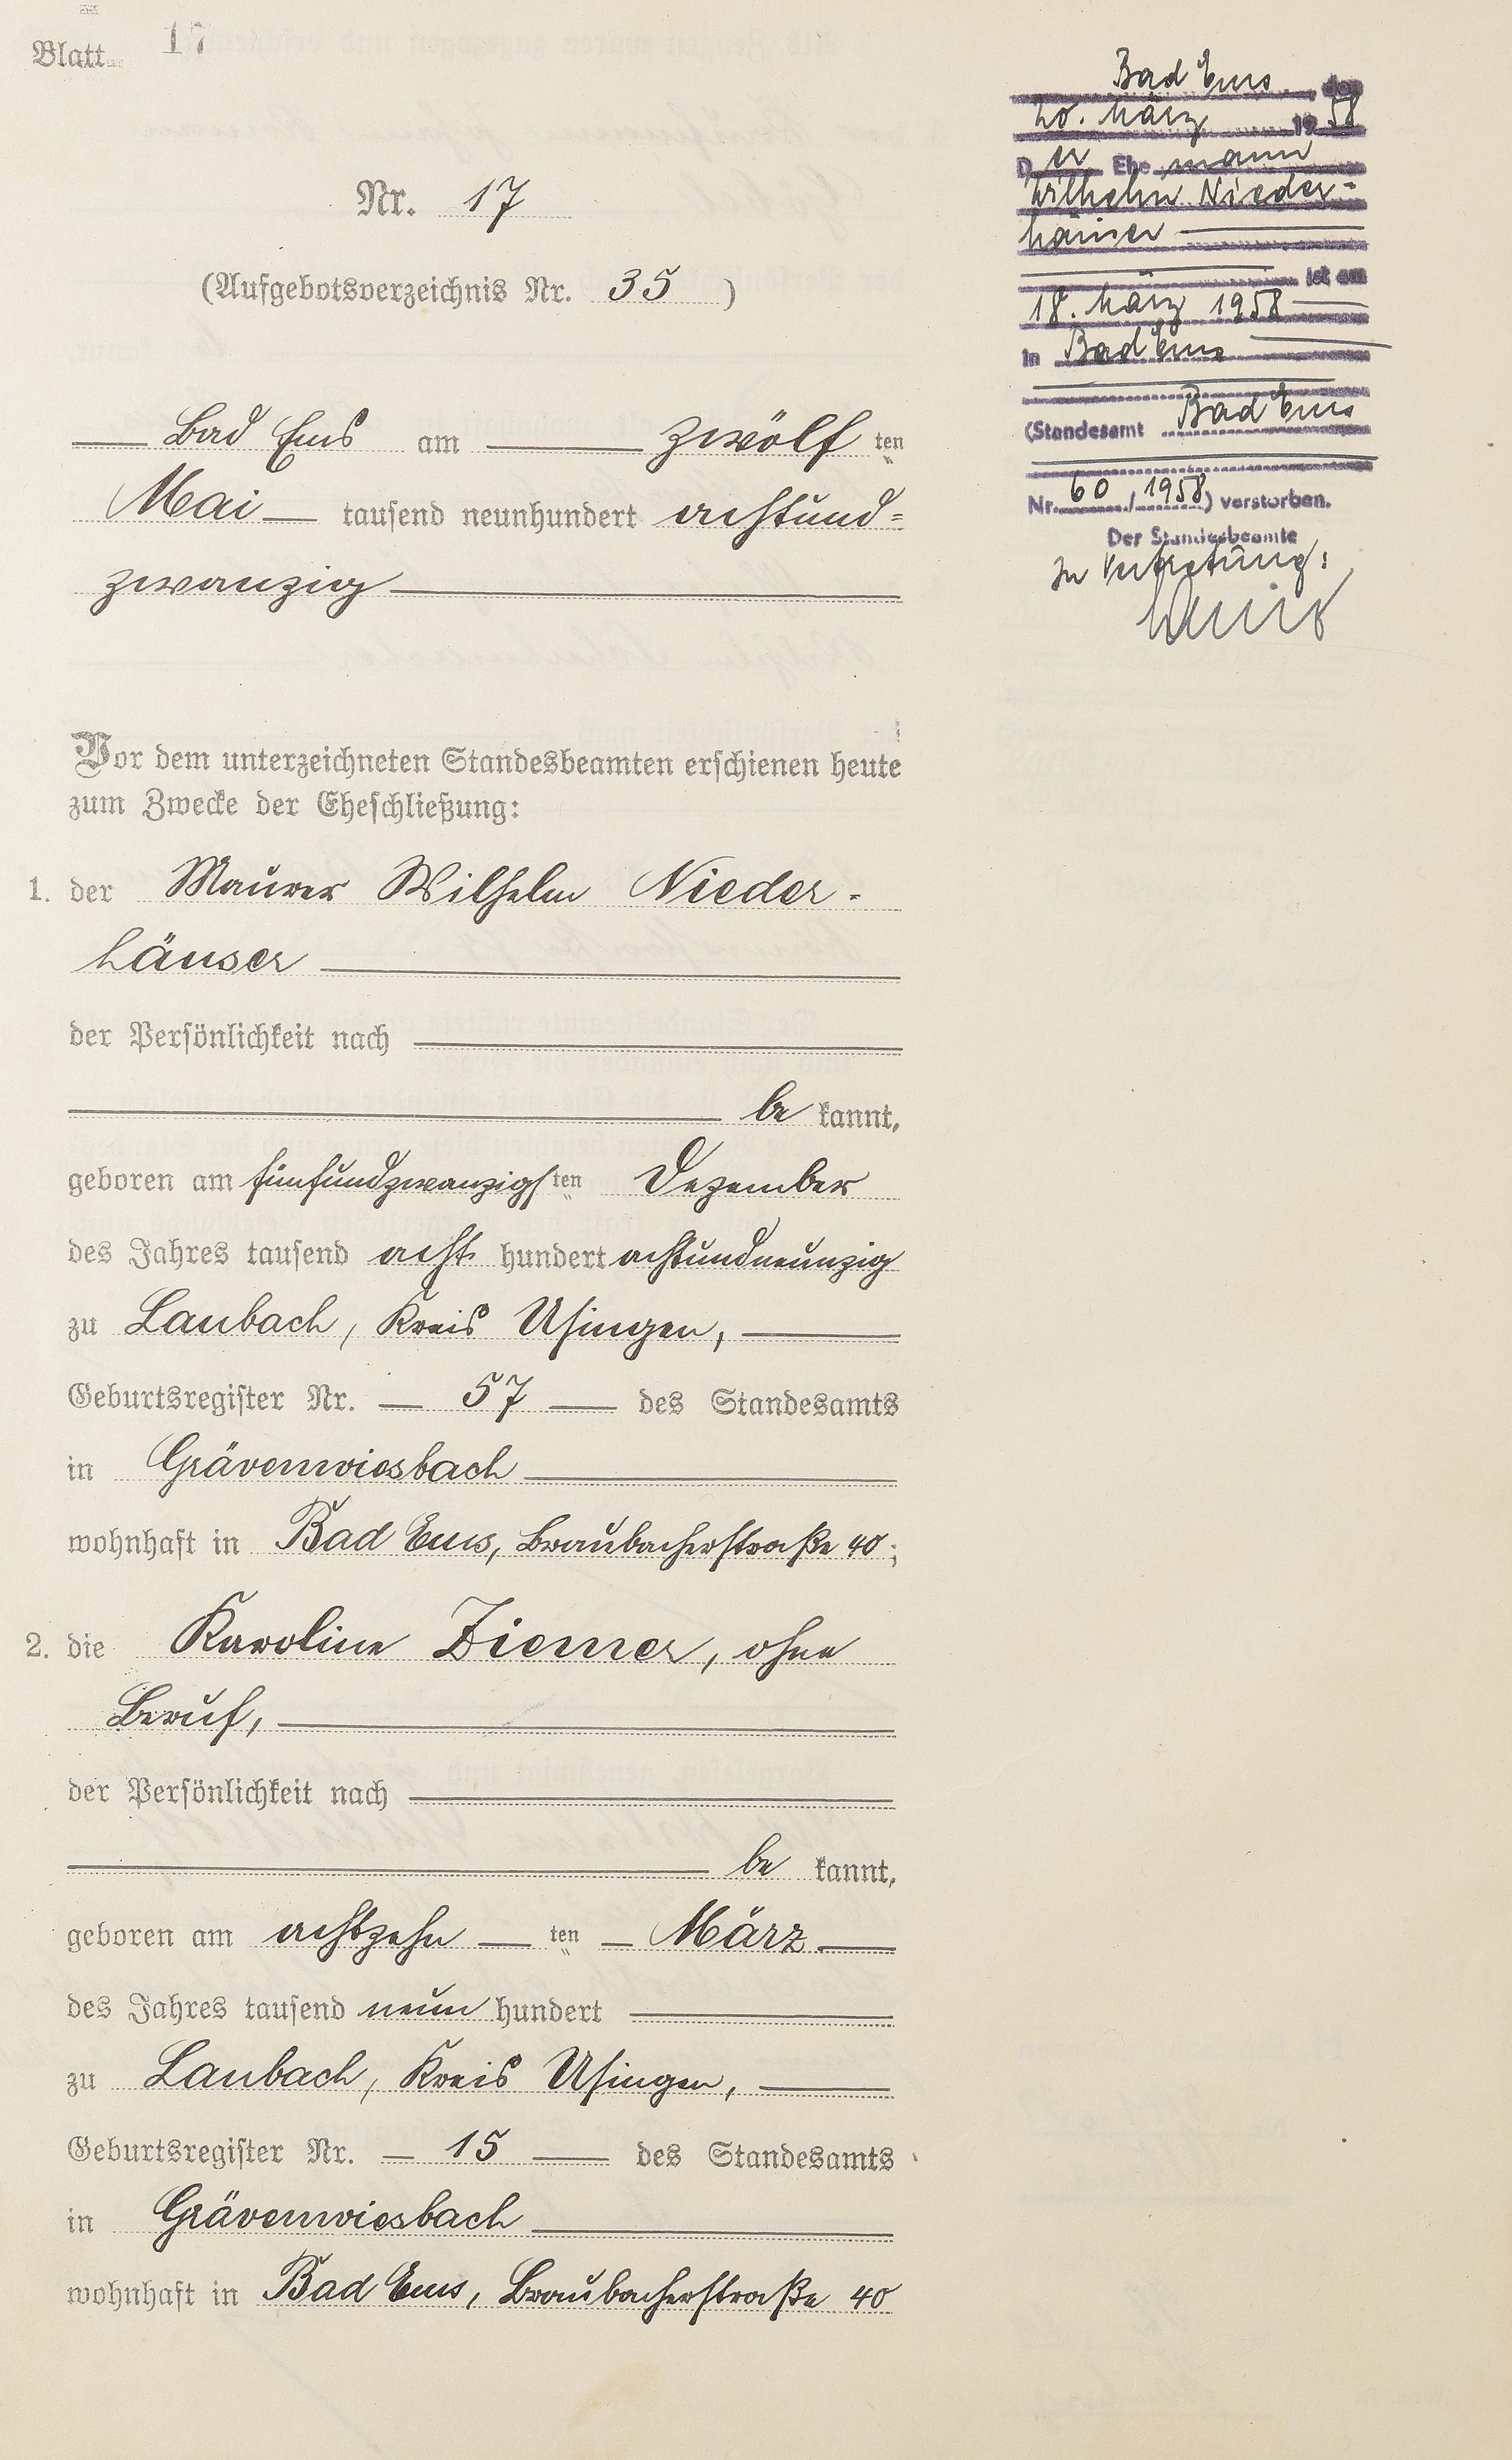 Blatt 17
Nr. 17
(Aufgebotsverzeichnis Nr. 35)
Bad Ems am zwölf ten
Mai tausend neunhundert achtund=
zwanzig
Vor dem unterzeichneten Standesbeamten erschienen heute
zum Zwecke der Eheschließung:
1. der Maurer Wilhelm Nieder-
häuser
der Persönlichkeit nach
be kannt,
geboren am fünfundzwanzigsten Dezember
des Jahres tausend acht hundert achtundneunzig
zu Laubach, Kreis Usingen,
Geburtsregister Nr. 57 des Standesamts
in Grävenwiesbach
wohnhaft in Bad Ems, Braubacherstraße 40;
2. die Karoline Ziemer, ohne
Beruf,
der Persönlichkeit nach
be kannt,
geboren am achtzehn ten März
des Jahres tausend neun hundert
zu Laubach, Kreis Usingen,
Geburtsregister Nr. 15 des Standesamts
in Grävenwiesbach
wohnhaft in Bad Ems, Braubacherstraße 40
Bad Ems, den
20. März 1958
Der Ehemann
Wilhelm Nieder=
häuser
ist am
18. März 1958
in Bad Ems
(Standesamt Bad Ems
Nr. 60/1958) verstorben.
Der Standesbeamte
In Vertretung: